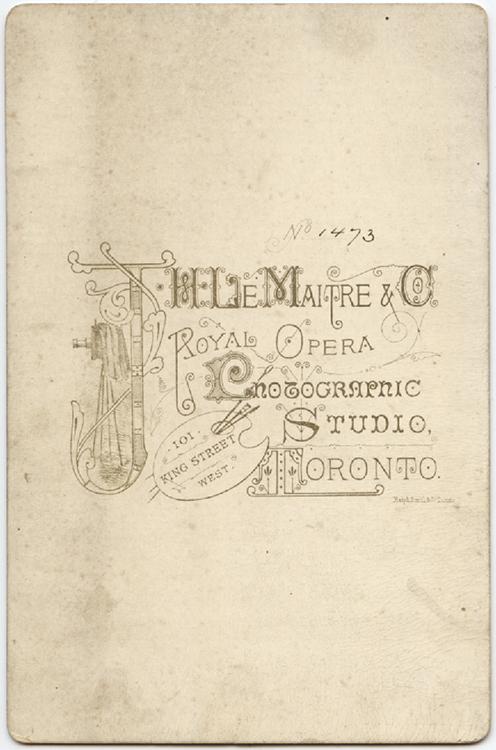 No 1473
J. H. LeMaitre & Co
Royal Opera
Photographic
Studio,
101
King Street
West.
Toronto.